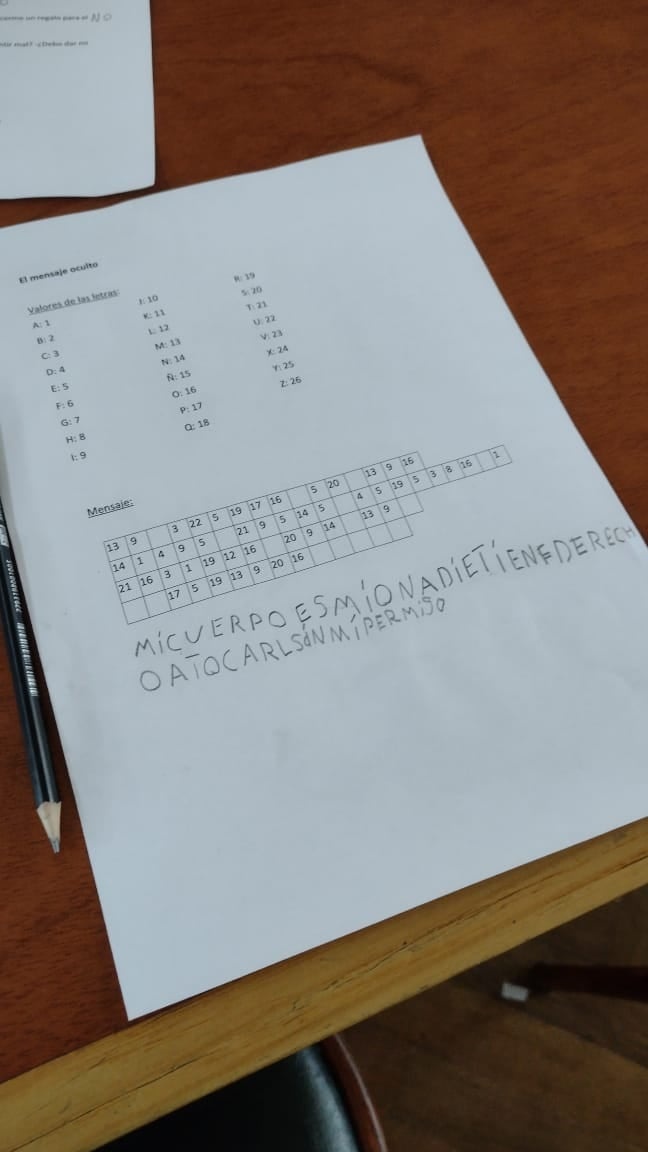 cerme un regalo para el NO
ntir mal? ¿Debo dar mi
El mensaje oculto
Valores de las letras:
A: 1
B: 2
C: 3
D: 4
E: 5
F: 6
G: 7
H: 8
I: 9
J: 10
K: 11
L: 12
M: 13
N: 14
Ñ: 15
O: 16
P: 17
Q: 18
R: 19
S: 20
T: 21
U: 22
V: 23
X: 24
Y: 25
Z: 26
Mensaje:
13 9 3 22 5 19 17 16 5 20 13 9 16
14 1 4 9 5 21 9 5 14 5 4 5 19 5 3 8 16 1
21 16 3 1 19 12 16 20 9 14 13 9
17 5 19 13 9 20 16
MíCUERPOESMÍONADÍETÍENEDERECH
OAÍOCARLSÓNMÍPERMiSO